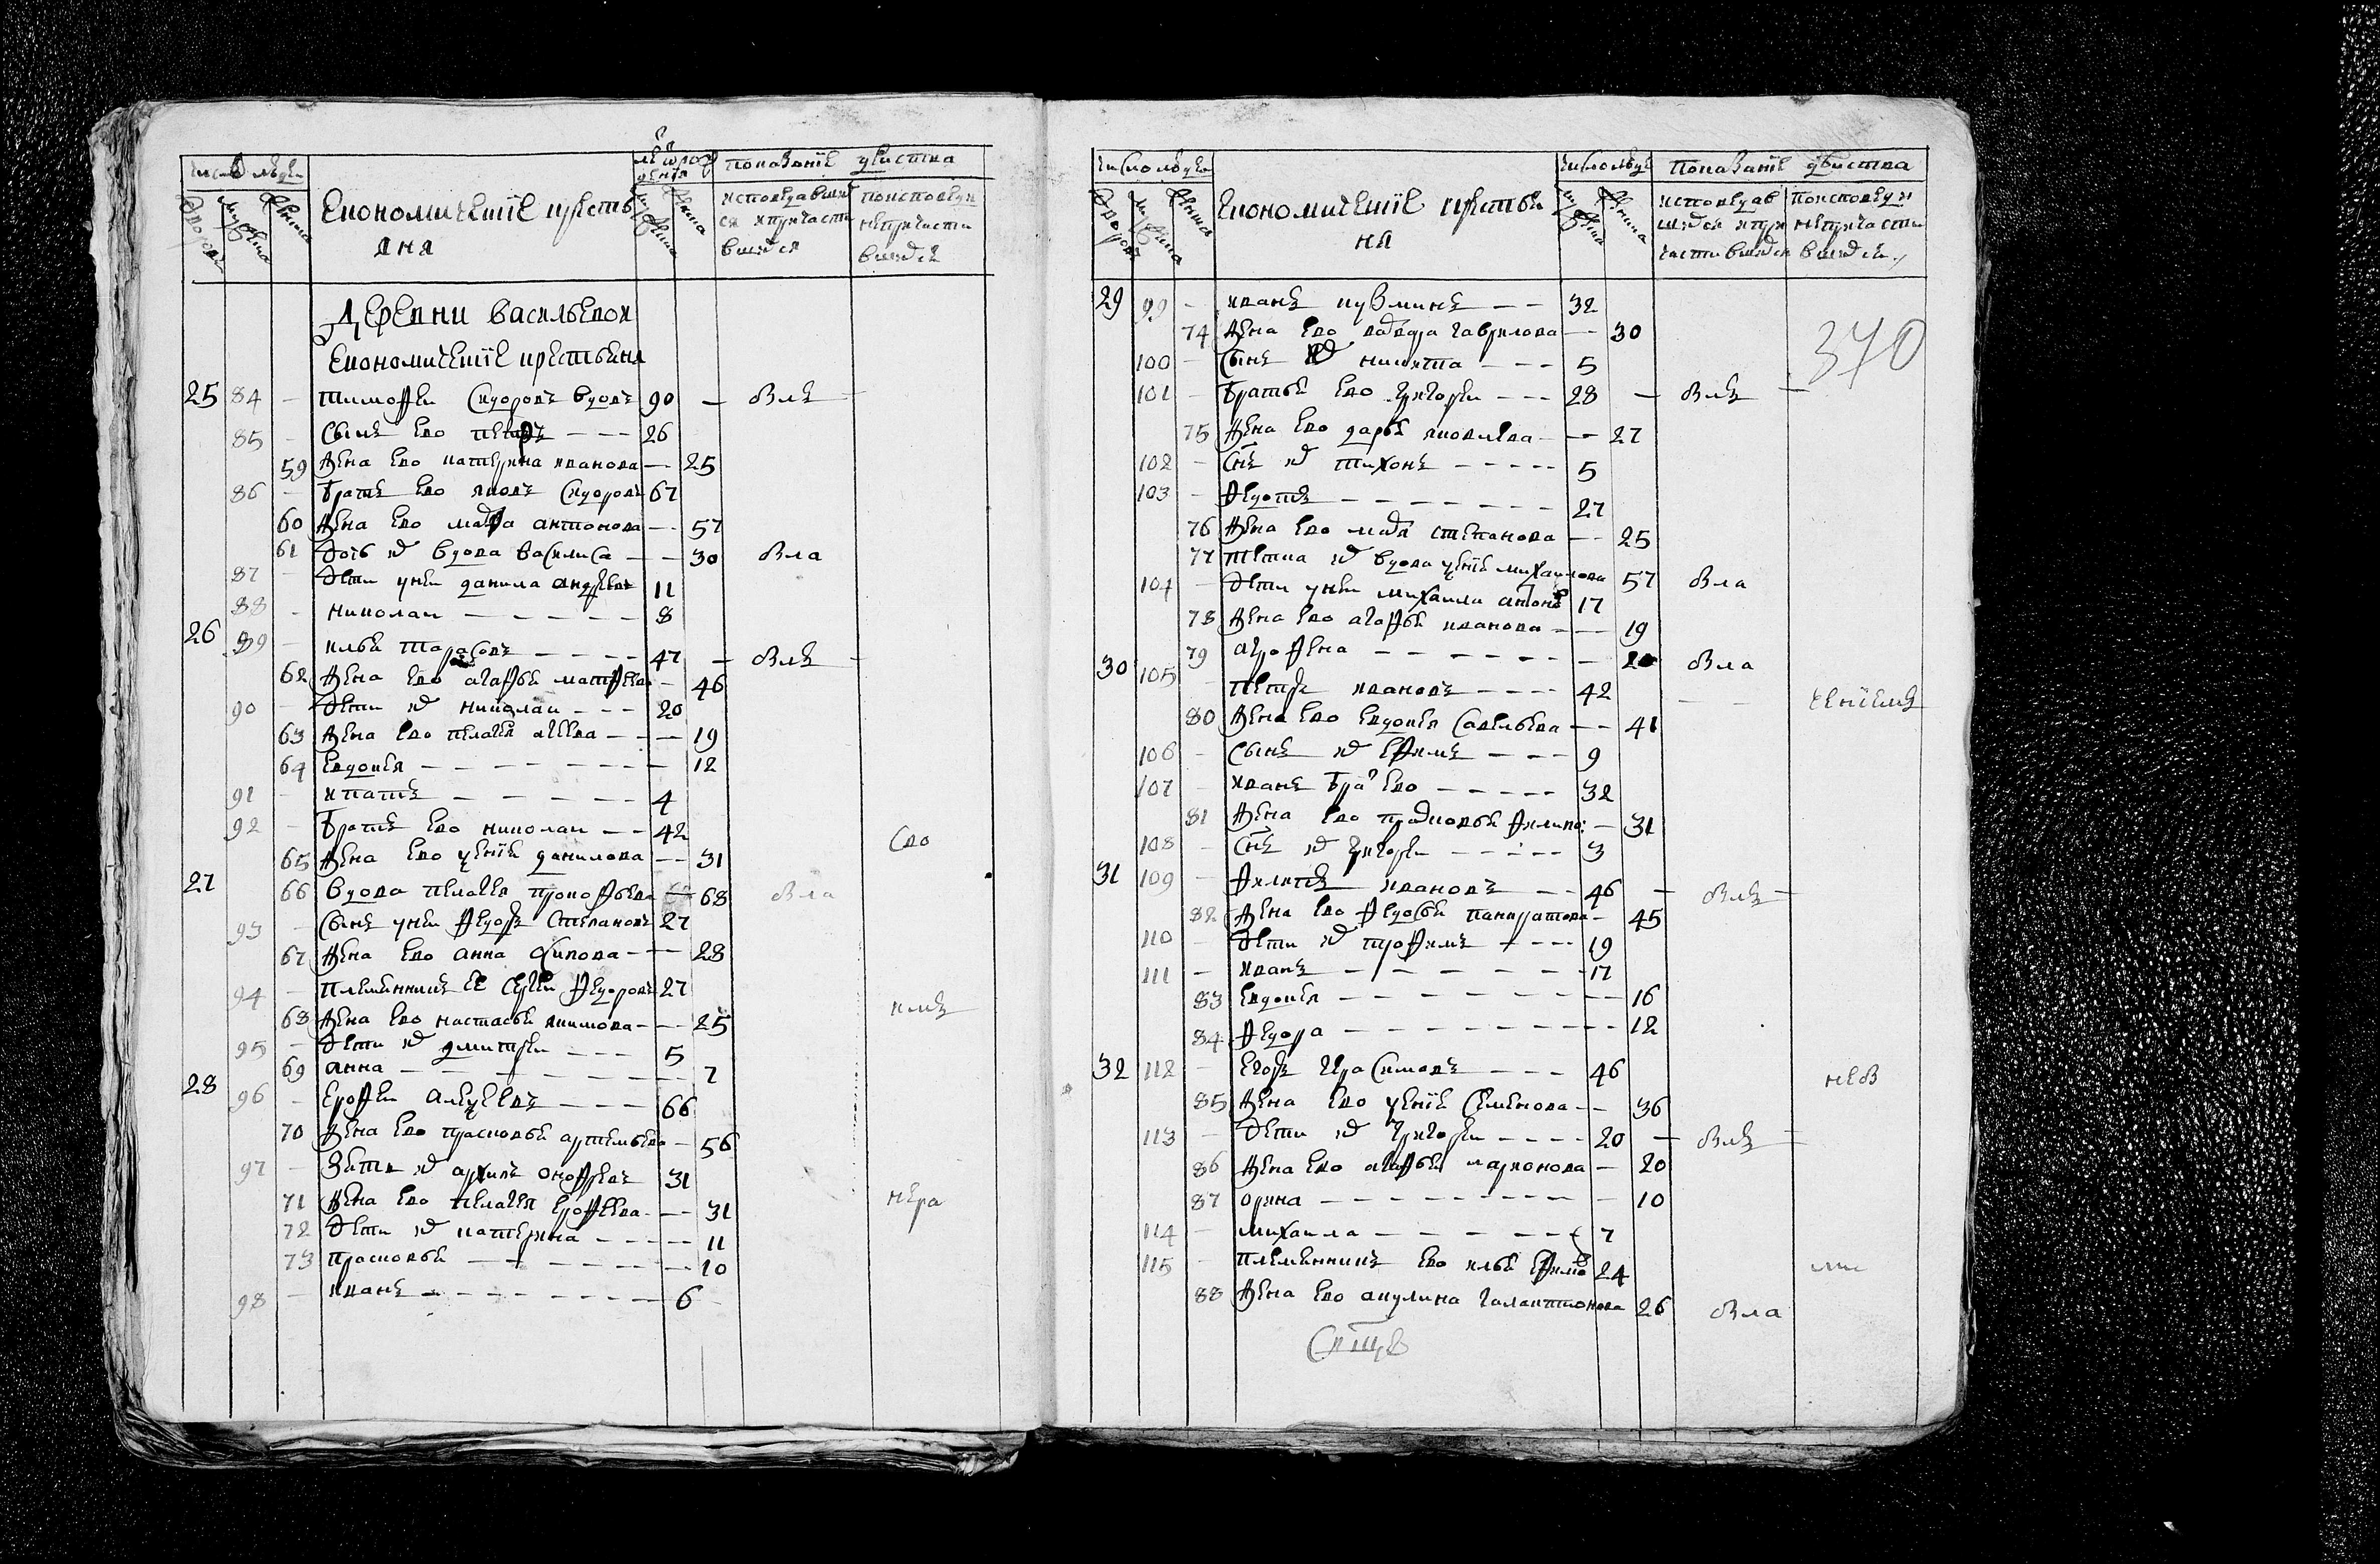 число людеи
дворовъ
мужеска
женска
Економическїе кресть
яня
лета от рож
дения
мужеска
женска
показанїе деиства
исповедавших
ся и причасти
вшихся
поисповедан
непричасти
вшихся
Деревни васильевои
Економическїе крестьяня
25 84 - тимофеи сидоровъ вдовъ 90 - была -
85 - сынъ ево петръ - - - 26
59 жена ево катерина иванова - 25
86 - братъ ево яковъ сидоровъ 67
60 жена ево марфа антонова - - 57
61 дочь их вдова василиса - - 30 была
87 - дети у неи данила андреевъ 11
88 - николаи - - - - - 8
26 89 - илья тарасовъ - - - - 47 - былъ -
62 жена ево агафья матфеева - 46
90 - дети их николаи - - - 20
63 жена ево пелагея агеева - - - 19
64 евдокея - - - - - - - - 12
91 - ипатъ - - - - - - 4
92 - братъ ево николаи - - 42 сво
65 жена ево ксенїя данилова - - 31
27 66 вдова пелагея прокофьева - 68 была
93 - сынъ у неи федоръ степановъ 27
67 жена ево анна осипова - - 28
94 - племянникъ ее сергеи федоровъ 27
68 жена ево настасья якимова - - 25
95 - дети их дмитреи - - - 5
69 анна - - - - - - - - 7
28 96 - ерофеи алексеевъ - - - 66
70 жена ево прасковья артемьева - 56
97 - зять их архипъ онофреевъ 31
71 жена ево пелагея ерофеева - - 31 нера
72 дети их катерина - - - - 11
73 прасковья - - - - - - 10
98 - иванъ - - - - - - - 6 -
число людеи
дворовъ
мужеска
женска
Економическїе крестья
ня
число людеи
мужеска
женска
показанїе деиства
исповедав
шихся и при
частившихся
поисповедан
непричасти
вшихся
370
29 99 - иванъ кузминъ - - 32
74 жена ево варвара гаврилова - - 30
100 - сынъ их никита - - - 5
101 - братья ево григореи - - - 28 - былъ -
75 жена ево дарья яковлева - - - 27
102 - снъ их тихонъ - - - - - 5
103 - федотъ - - - - - - - 27
76 жена ево марья степанова - - 25
77 тетка их вдова ксенїя михаилова 57 была
104 - дети у неи михаила антонов 17
78 жена ево агафья иванова - - - 19
79 агрофена - - - - - - - 20 была
30 105 - петръ ивановъ - - - - 42 - -
80 жена ево евдокея савельева - - 41
106 - сынъ их ефимъ - - - 9
107 - иванъ бра ево - - - - - 32
81 жена ево прасковья филипо: - 31
108 - снъ их григореи - - - - - 3
31 109 - филипъ ивановъ - - 46 - былъ -
82 жена ево федосья панкратова - 45
110 - дети их трофимъ - - - 19
111 - иванъ - - - - - - - 17
83 евдокея - - - - - - - - - 16
84 федора - - - - - - - - - 12
32 112 - егоръ герасимовъ - - - 46
85 жена ево ксенїя семенова - - 36
113 - дети их григореи - - - - 20 - былъ -
86 жена ево агафья ларионова - 20
87 орина - - - - - - - - - - 10
114 - михаила - - - - - - 7
115 - племянникъ ево илья ефимо 24
88 жена ево акулина галактионова 26 была